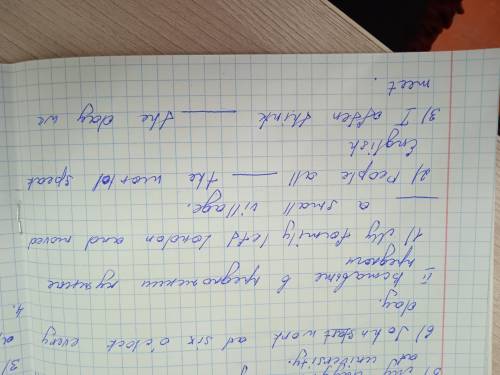 5) My
ad university.
6) John start work ad six o'clock every
day.
II Вставьте в предложении нужные
предлоги
1) My family left London and moved
____ a small village.
2) People all ____ the world speak
English
3) I often think ____ the day we
meet.
3)
4.